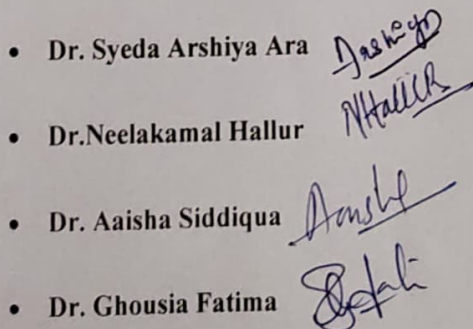 • Dr. Syeda Arshiya Ara
• Dr.Neelakamal Hallur NHallur
• Dr. Aaisha Siddiqua
• Dr. Ghousia Fatima